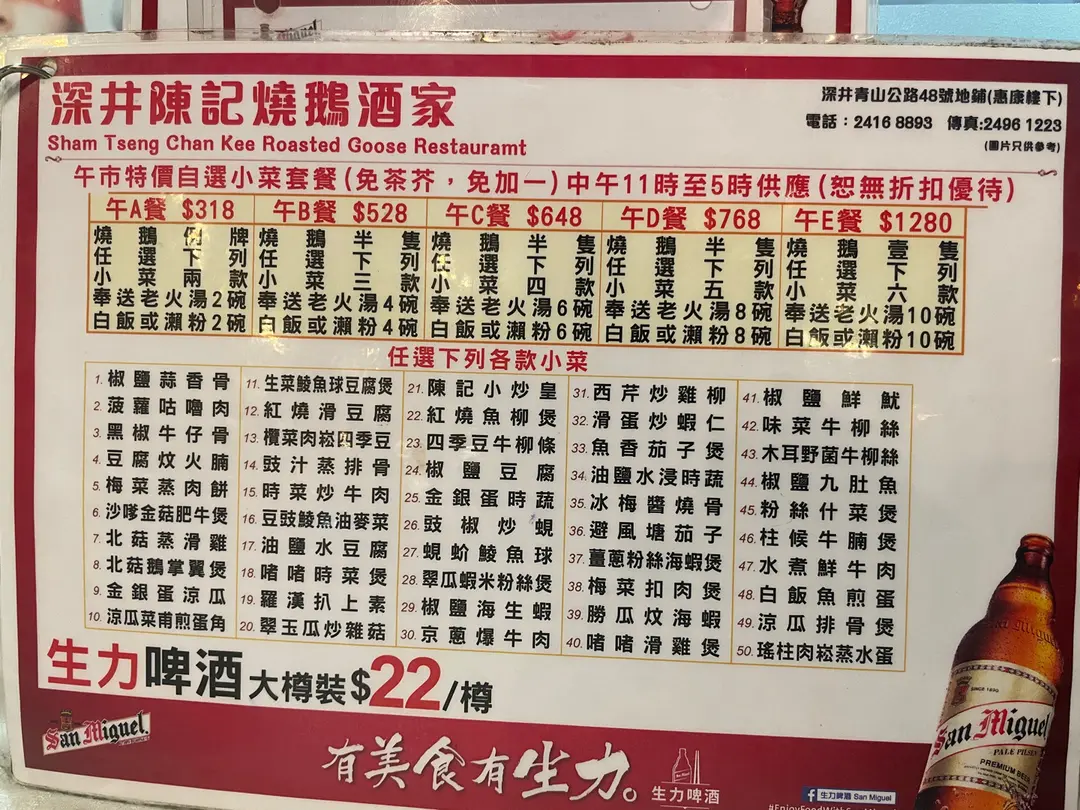 San Miguel
深井陳記燒鵝酒家
Sham Tseng Chan Kee Roasted Goose Restauramt
深井青山公路48號地鋪(惠康樓下)
電話：2416 8893 傳真:2496 1223
(圖片只供參考)
午市特價自選小菜套餐(免茶芥，免加一)中午11時至5時供應(恕無折扣優待)
午A餐 $318
燒鵝例牌
任選下列
小菜兩款
奉送老火湯2碗
白飯或瀨粉2碗
午B餐 $528
燒鵝半隻
任選下列
小菜三款
奉送老火湯4碗
白飯或瀨粉4碗
午C餐 $648
燒鵝半隻
任選下列
小菜四款
奉送老火湯6碗
白飯或瀨粉6碗
午D餐 $768
燒鵝半隻
任選下列
小菜五款
奉送老火湯8碗
白飯或瀨粉8碗
午E餐 $1280
燒鵝壹隻
任選下列
小菜六款
奉送老火湯10碗
白飯或瀨粉10碗
任選下列各款小菜
1. 椒鹽蒜香骨
2. 菠蘿咕嚕肉
3. 黑椒牛仔骨
4. 豆腐炆火腩
5. 梅菜蒸肉餅
6. 沙嗲金菇肥牛煲
7. 北菇蒸滑雞
8. 北菇鵝掌翼煲
9. 金銀蛋涼瓜
10. 涼瓜菜甫煎蛋角
11. 生菜鯪魚球豆腐煲
12. 紅燒滑豆腐
13. 欖菜肉崧四季豆
14. 豉汁蒸排骨
15. 時菜炒牛肉
16. 豆豉鯪魚油麥菜
17. 油鹽水豆腐
18. 啫啫時菜煲
19. 羅漢扒上素
20. 翠玉瓜炒雜菇
21. 陳記小炒皇
22. 紅燒魚柳煲
23. 四季豆牛柳條
24. 椒鹽豆腐
25. 金銀蛋時蔬
26. 豉椒炒蜆
27. 蜆蚧鯪魚球
28. 翠瓜蝦米粉絲煲
29. 椒鹽海生蝦
30. 京蔥爆牛肉
31. 西芹炒雞柳
32. 滑蛋炒蝦仁
33. 魚香茄子煲
34. 油鹽水浸時蔬
35. 冰梅醬燒骨
36. 避風塘茄子
37. 薑蔥粉絲海蝦煲
38. 梅菜扣肉煲
39. 勝瓜炆海蝦
40. 啫啫滑雞煲
41. 椒鹽鮮魷
42. 味菜牛柳絲
43. 木耳野菌牛柳絲
44. 椒鹽九肚魚
45. 粉絲什菜煲
46. 柱候牛腩煲
47. 水煮鮮牛肉
48. 白飯魚煎蛋
49. 涼瓜排骨煲
50. 瑤柱肉崧蒸水蛋
生力啤酒大樽裝$22/樽
San Miguel
有美食有生力。
生力啤酒
生力啤酒 San Miguel
SINCE 1890
San Miguel
PALE PILSEN
PREMIUM BEER